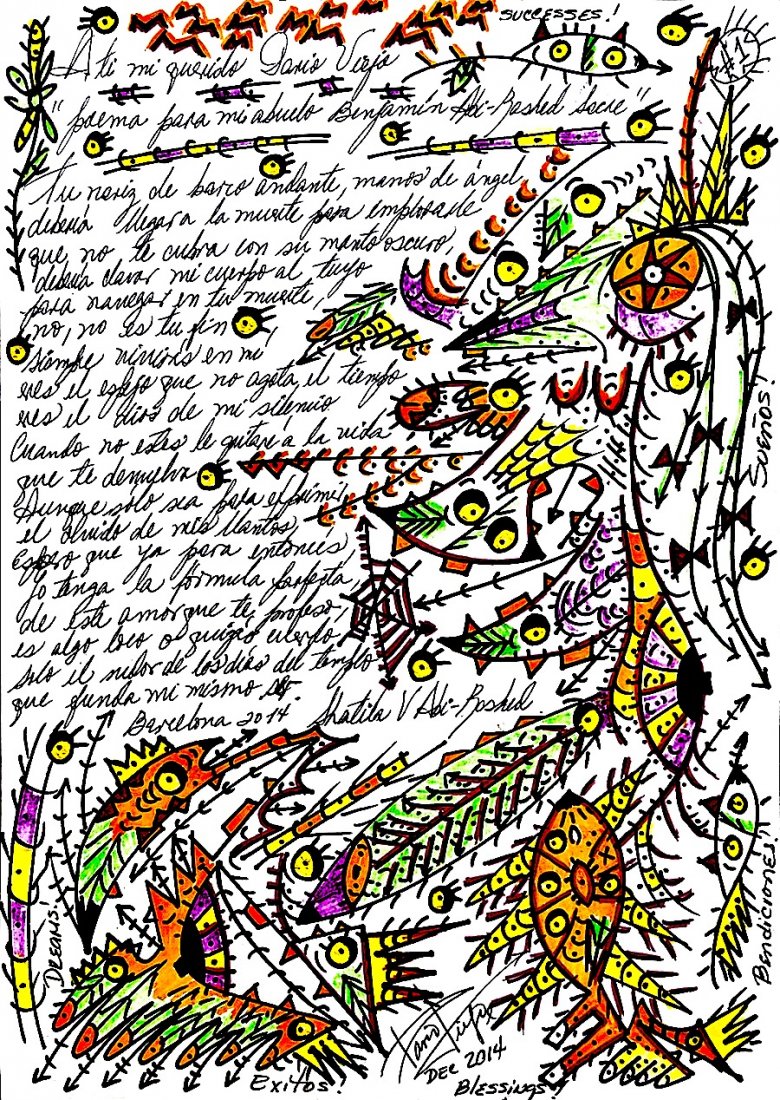 SUCCESSES!
#1
A ti mi querido Dario Viejo
"poema para mi abuelo Benjamín Abi-Rashed Socre"
Tu nariz de barco andante, manos de ángel
debería llegar a la muerte para
que no te cubra con su manto oscuro,
debería clavar mi cuerpo al tuyo
para navegar en tu muerte,
no, no es tu fin
siempre en mi
eres el espejo que no agota el tiempo
eres el dios de mi silencio
Cuando no estes le gritaré a la vida
que te devuelva
Aunque solo sea para
el olvido de mis llantos,
Espero que ya para entonces
yo tenga la fórmula perfecta,
de este amor que te profeso,
es algo loco o quizás cuerdo
solo el de los días del templo
que mi mismo
Barcelona 2014 Shatila V Abi-Rashed.
SUEÑOS!
DREAMS!
Bendiciones!
DEC 2014
Exitos!
Blessings!